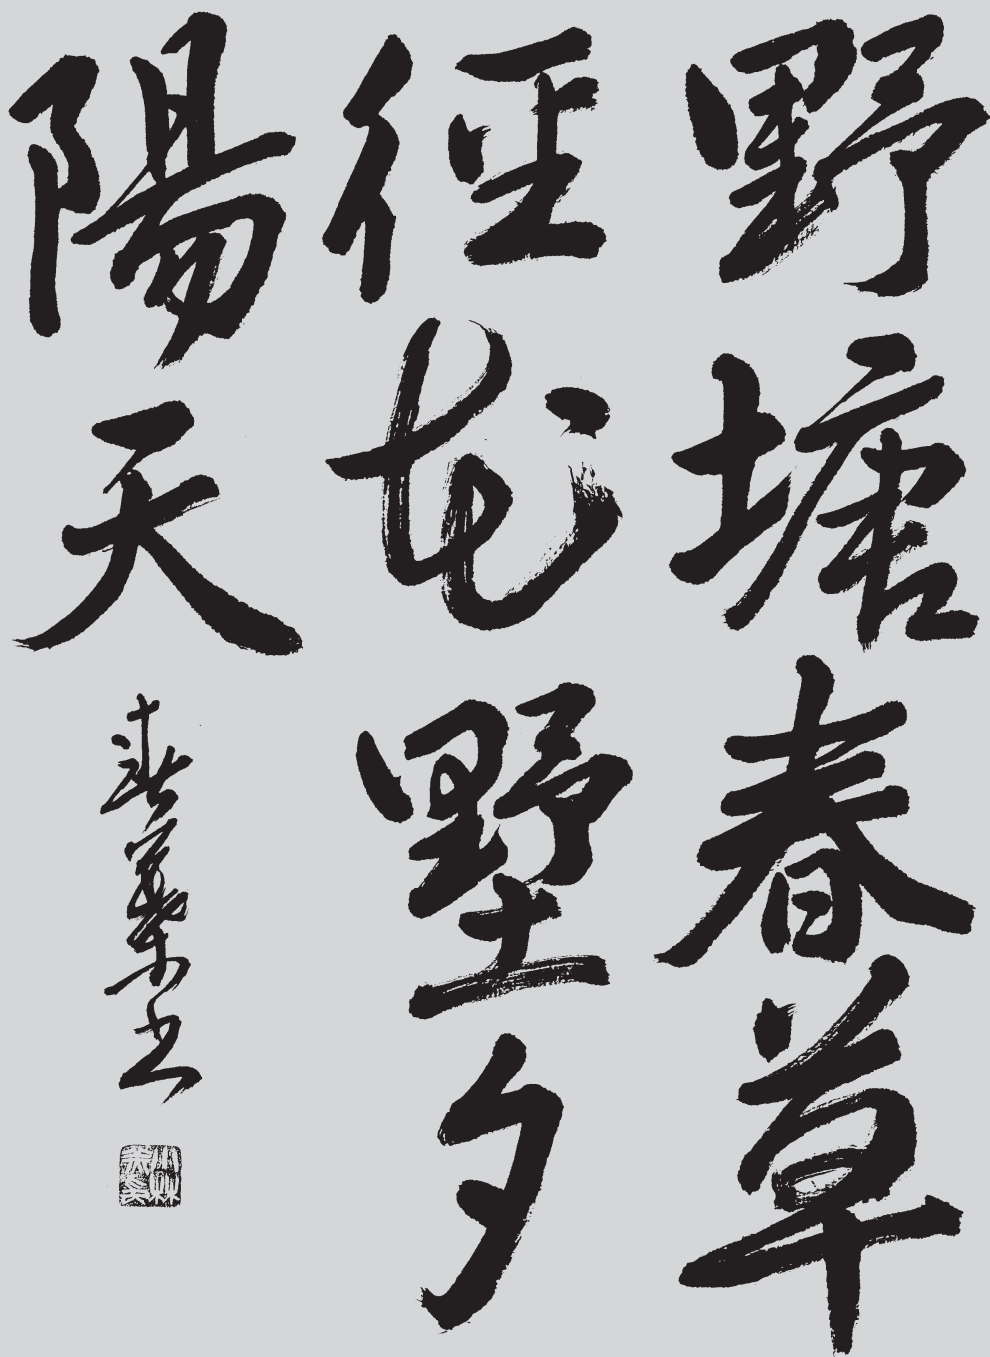 野塘春草
徑花墅夕
陽天